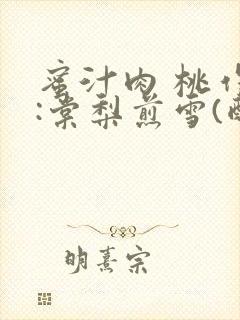 蜜汁肉桃作
:棠梨煎雪(酥
明熹宗